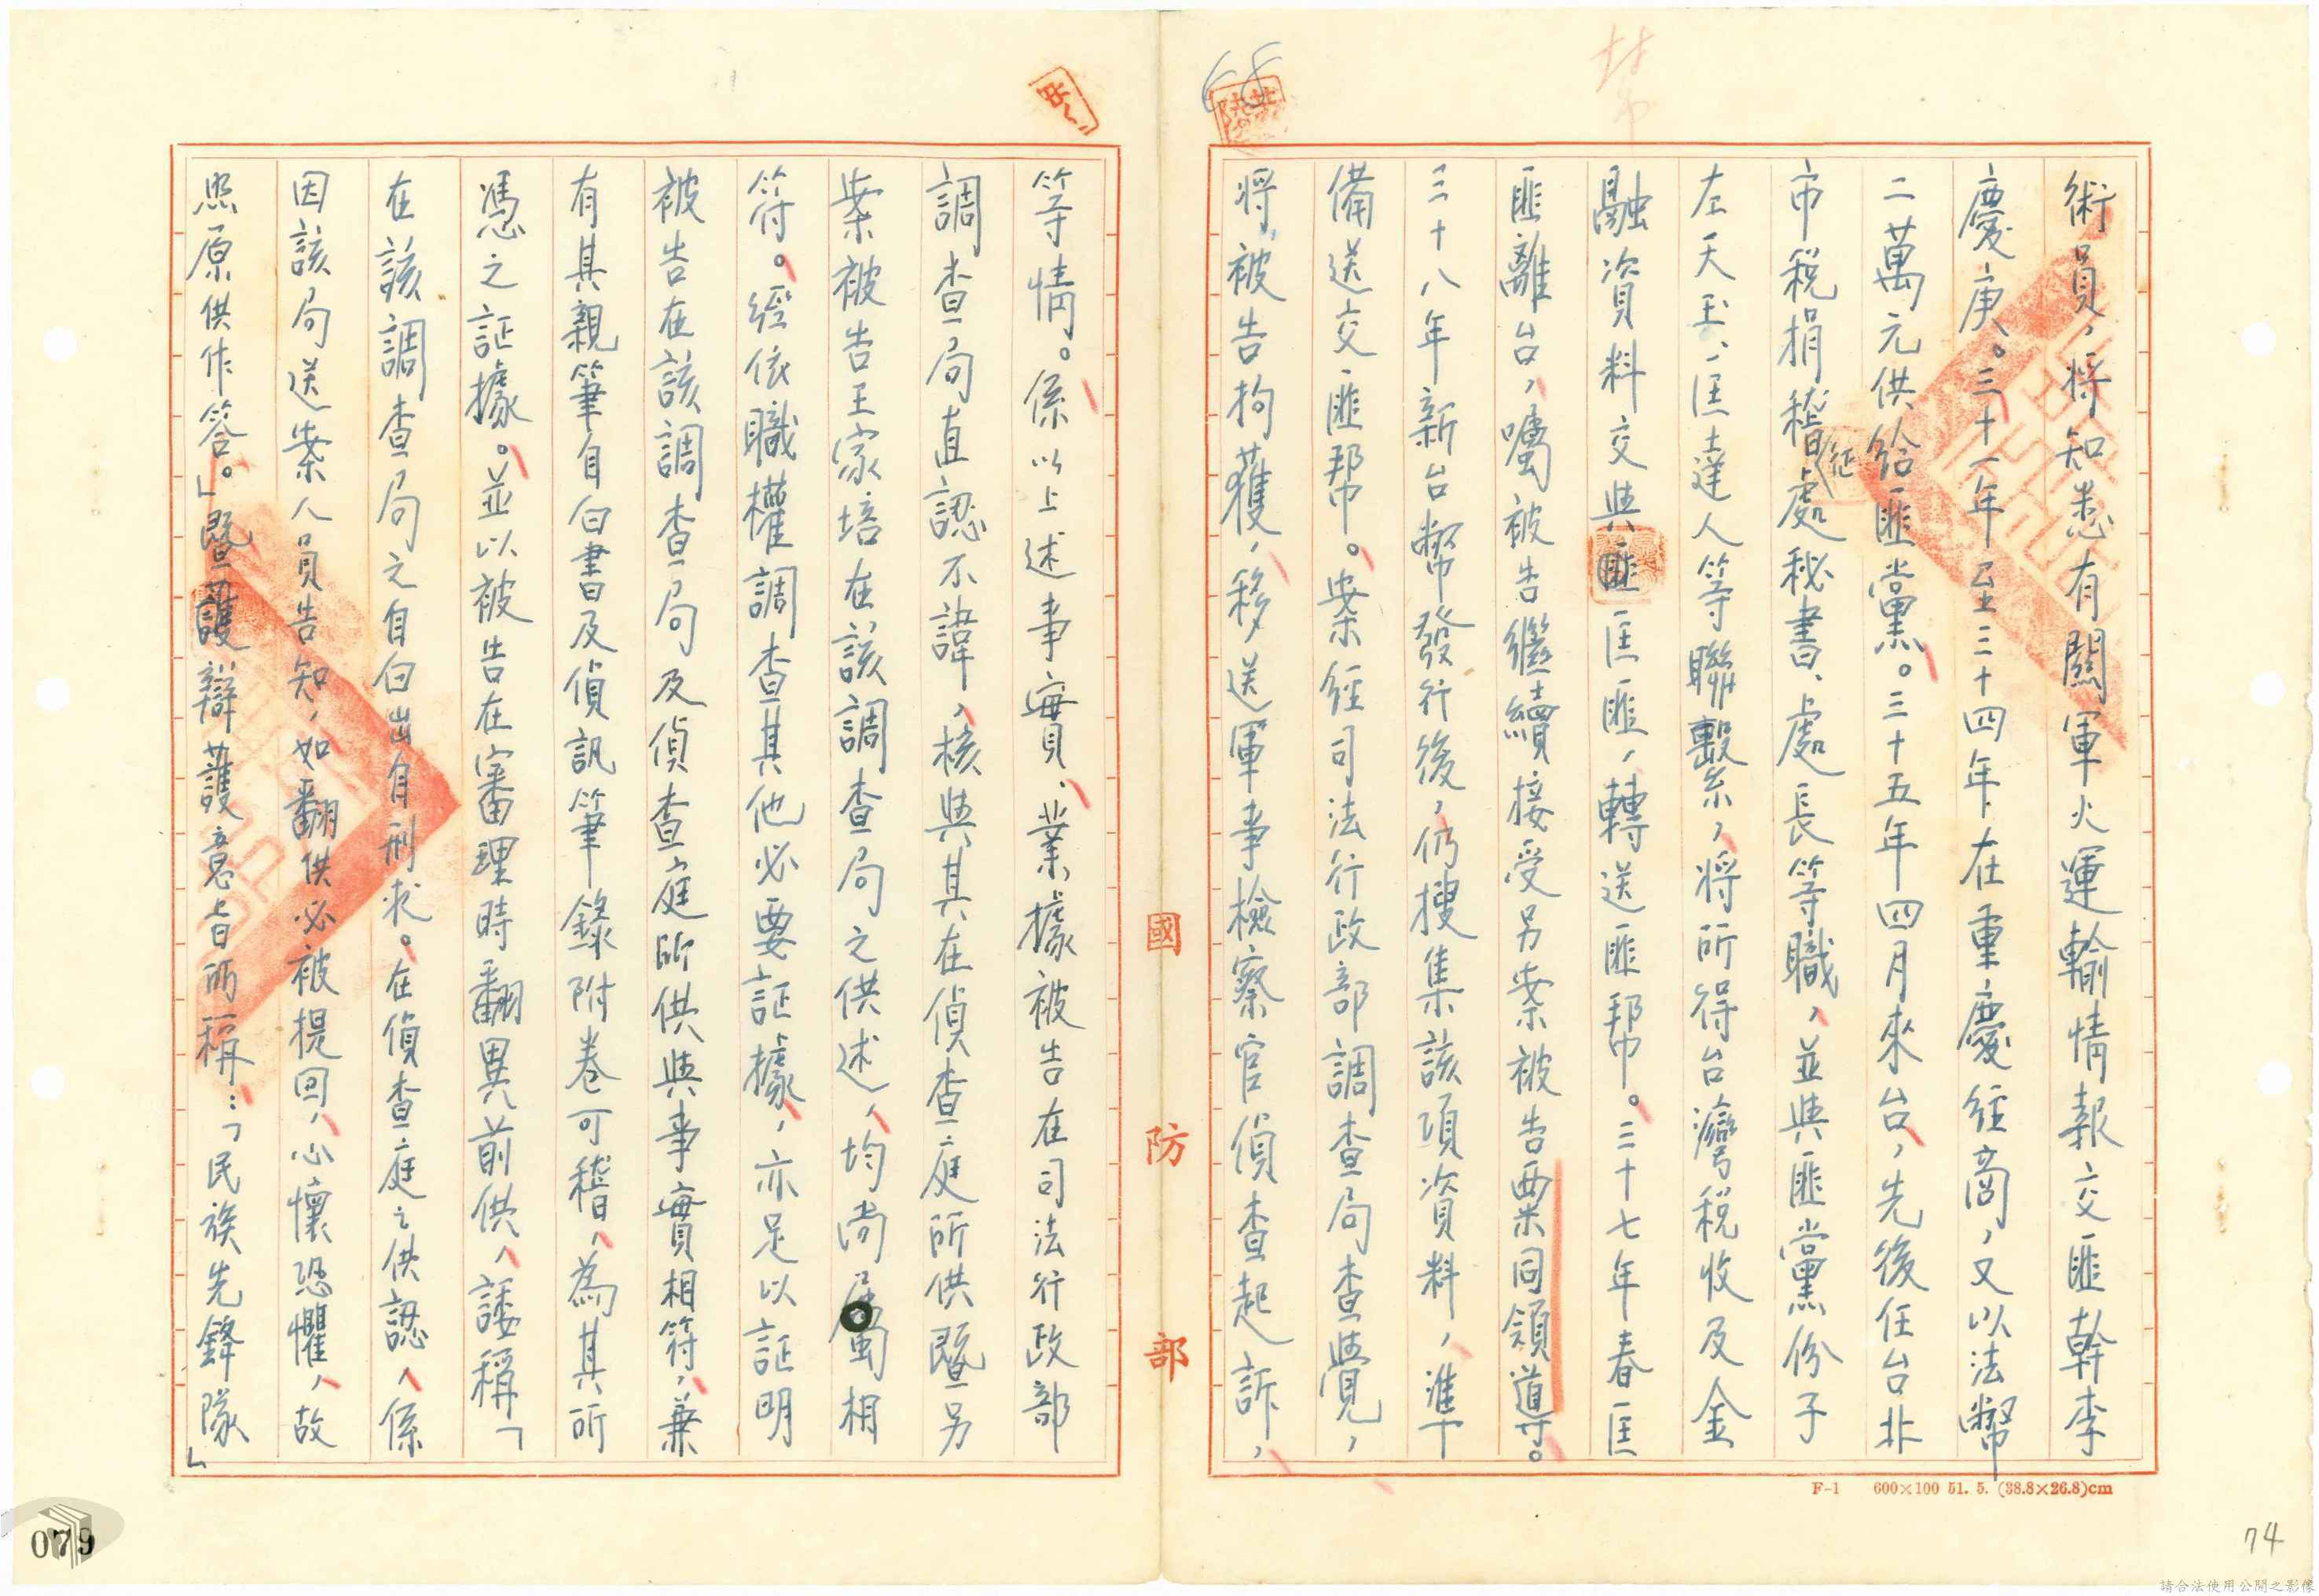 術員，將知悉有關軍火運輸情報交匪幹李
慶庚。三十一年至三十四年在重慶經商，又以法幣
二萬元供給匪黨。三十五年四月來台，先後任台北
市稅捐稽征處秘書、處長等職，並與匪黨份子
左天玉、匡達人等聯繫，將所得台灣稅收及金
融資料交與匪匡匪，轉送匪幫。三十七年春匡
匪離台，囑被告繼續接受另案被告栗同領導。
三十八年新台幣發行後，仍搜集該項資料，準
備送交匪幫。案經司法行政部調查局查覺，
將被告拘獲，移送軍事檢察官偵查起訴，
等情。係以上述事實，業據被告在司法行政部
調查局直認不諱，核與其在偵查庭所供暨另
案被告王家培在該調查局之供述，均尚屬相
符。經依職權調查其他必要証據，亦足以証明
被告在該調查局及偵查庭所供與事實相符，兼
有其親筆自白書及偵訊筆錄附卷可稽，為其所
憑之証據。並以被告在審理時翻異前供，諉稱「
在該調查局之自白出自刑求。在偵查庭之供認，係
因該局送案人員告知，如翻供必被提回，心懷恐懼，故
照原供作答。」暨護辯護意旨所稱：「民族先鋒隊」
國防部
F-1 600×100 51. 5. (38.8×26.8)cm
68
079
74
請合法使用公開之影像